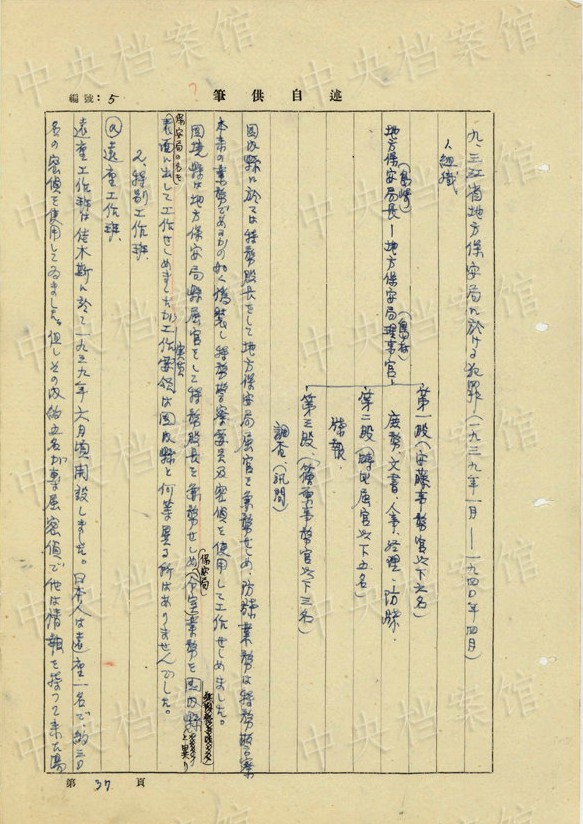 述自供筆
編號：5
九、三江省地方保安局に於ける犯罪（一九三九年一月——一九四〇年四月）
1、組織
地方保安局長（島崎）—地方保安局理事官（島村）
第一股（安藤事務官以下六名）
庶務、文書、人事、経理、防諜、
第二股（　屬官以下五名）
諜報、
第三股、（篠原事務官以下三名）
調查、（訊問）
國內縣に於ては特務股長をして地方保安局屬官を兼務せしめ、防諜業務は特務警察
本来の業務であるかの如く偽装し特務警察官及密偵を使用して工作せしめました。
國境縣は地方保安局縣屬官をして特務股長を兼務せしめ（保安局）業務を國內縣と異り
保安局の名を表面に出して工作せしめましたが工作要領は國內縣と何等異る所はありませんでした。
2、特別工作班、
(a) 遠產工作班、
遠產工作班は佳木斯に於て一九三九年六月頃開設しました。日本人は遠產一名で、約三〇
名の密偵を使用してゐました。但しその內約五名が專屬密偵で他は情報を持つて来た時
第 37 頁
中央档案馆